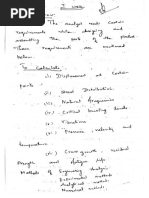 I UNIT
The analyst needs certain
requirements when designing and
the of product
These requirements are mentioned
below.
To Calculate
(i) Displacement at certain
points.
(ii) Stress Distribution
(iii) Natural frequencies
(iv) Critical buckling loads
(v) Vibrations
(vi) Pressure, velocity and
temperature
(vii) Crack growth, residual
strength and fatigue life.
Methods of Engineering Analysis
Experimental methods
Analytical methods
Numerical methods